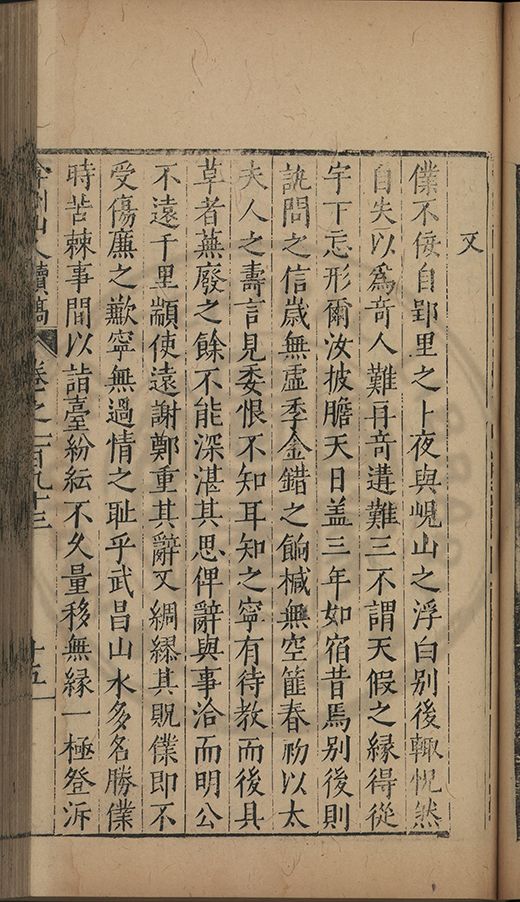 又
僕不佞自郢里之卜夜與峴山之浮白別後輒怳然
自失以為奇人難再奇遘難三不謂天假之緣得從
宇下忘形爾汝披膽天日盖三年如宿昔焉別後則
訊問之信歲無虛季金錯之餉椷無空篚春初以太
夫人之壽言見委恨不知耳知之寧有待教而後具
草者蕪廢之餘不能深湛其思俾辭與事洽而明公
不遠千里顓使遠謝鄭重其辭又綢繆其貺僕即不
受傷廉之歎寧無過情之耻乎武昌山水多名勝僕
時苦棘事間以詣臺紛紜不久量移無緣一極登泝
弇州山人續稿 卷之一百九十三 十五